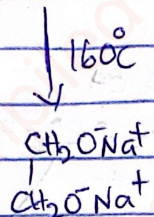 160°C
CH₂O⁻Na⁺
|
CH₂O⁻Na⁺